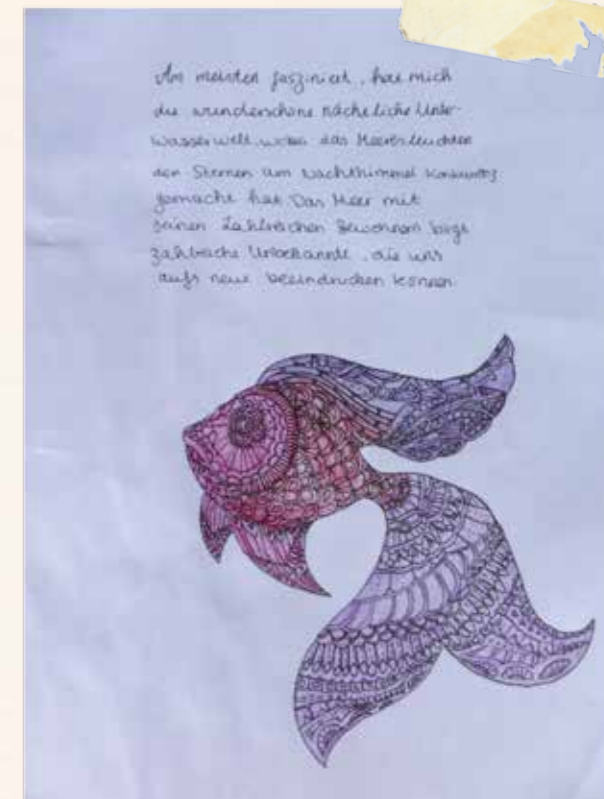 Am meisten fasziniert, hat mich
die wunderschöne nächtliche Unter-
wasserwelt, wobei das Meeresleuchten
den Sternen am Nachthimmel Konkurrenz
gemacht hat. Das Meer mit
seinen zahlreichen Bewohnern birgt
zahlreiche Unbekannte, die uns
aufs neue beeindrucken können.